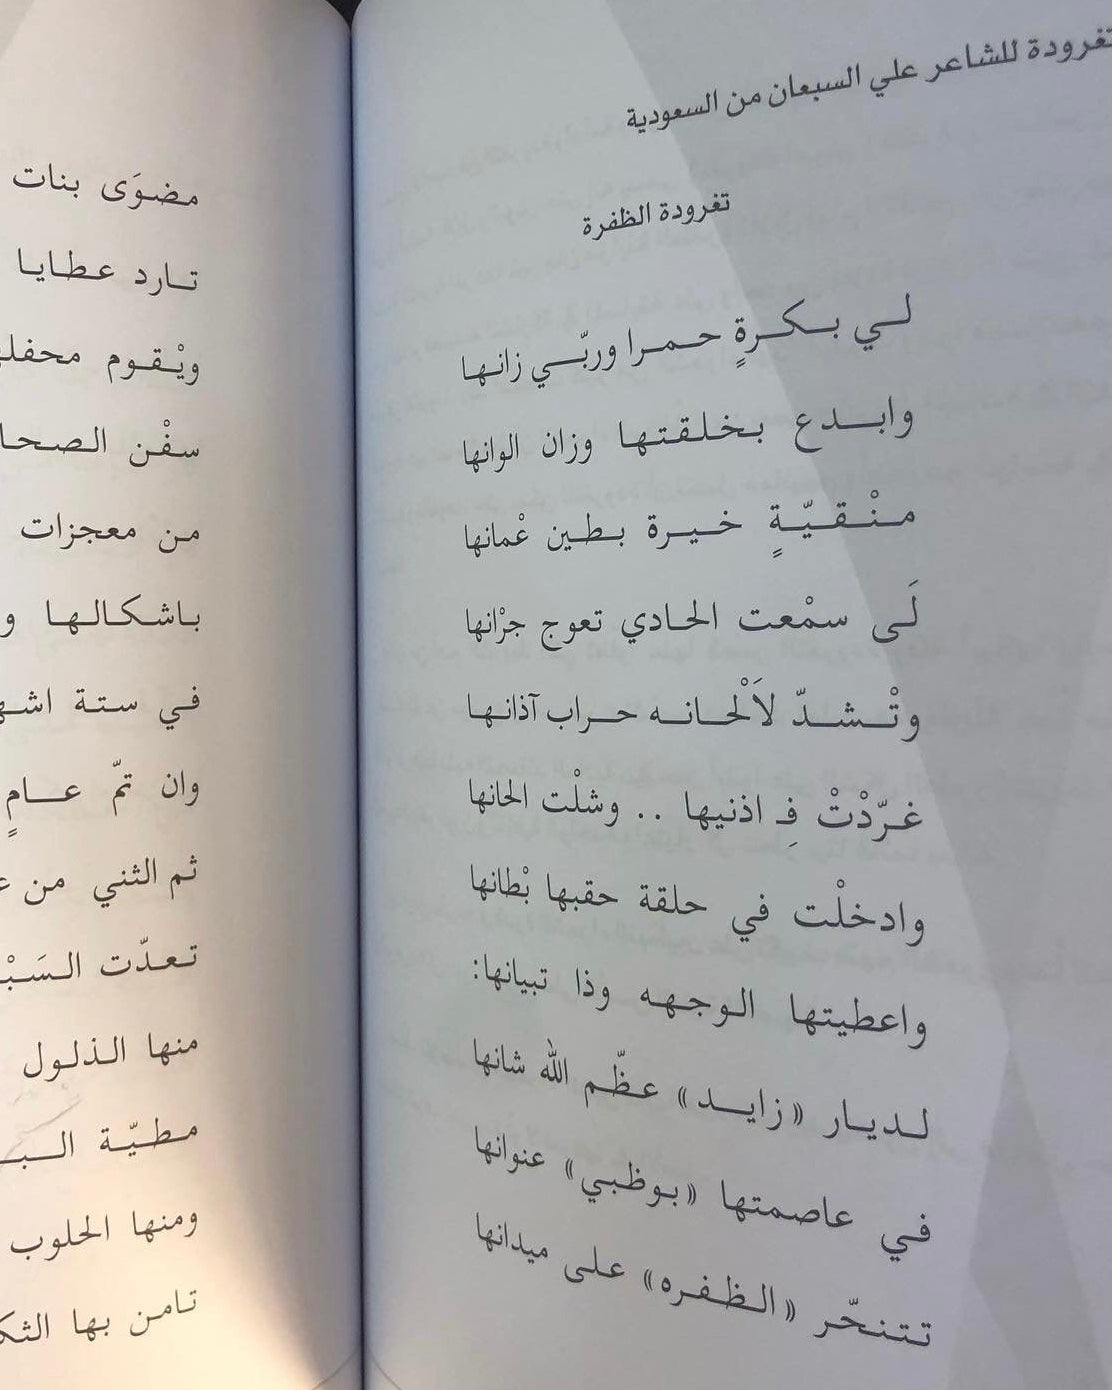 تغرودة للشاعر علي السبعان من السعودية
تغرودة الظفرة
لـي بـكـرةٍ حـمـرا وربّـي زانـها
وابـدع بـخلـقتـها وزان الوانها
مـنْـقـيّـةٍ خـيـرة بـطـين عْمانها
لَـى سمْعت الحـادي تعوج جرْانها
وتْـشـدّ لاَلْحـانـه حـراب آذانـها
غـرّدْتْ فِـ اذنيها .. وشلْت الحانها
وادخلْت في حلقة حقبها بْطانها
واعطيتها الـوجـهـه وذا تبيانها:
لـديـار «زايـد» عـظّـم الله شانها
في عاصمتها «بـوظـبـي» عنوانها
تـتـنـحّـر «الـظـفـره» عـلـى ميدانها
مـضـوَى بنات
تـارد عـطـايـا
ويْـقـوم محفلـ
سفْـن الـصـحـا
مـن معجزات
بـاشـكـالـهـا و
فـي ستـة اشـهـ
وان تمّ عـامٍ
ثم الثني من عـ
تـعـدّت الـسَـبْـ
منها الـذلـول
مـطـيّـة الـبـ
ومنها الحلوب
تـامـن بـها الثكـ